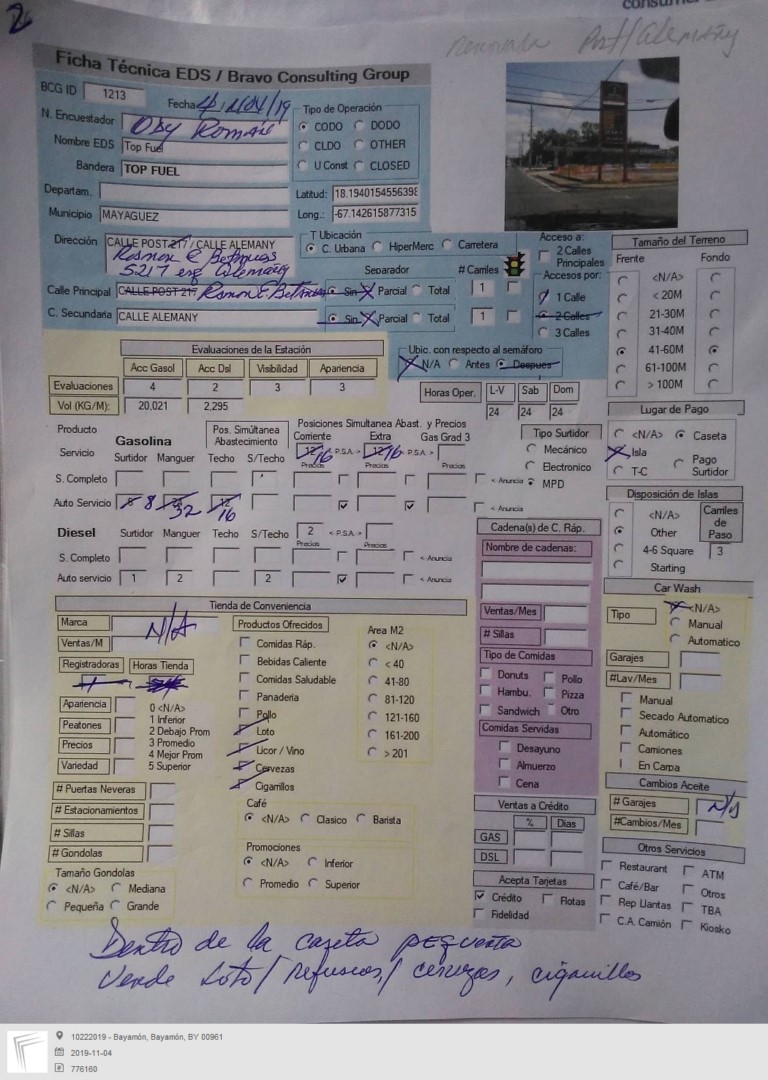 2
Ficha Técnica EDS / Bravo Consulting Group
Post/Alemañy
BCG ID 1213
Fecha 11/04/19
N. Encuestador Oby Roman
Nombre EDS Top Fuel
Bandera TOP FUEL
Departam.
Municipio MAYAGUEZ
Tipo de Operación
CODO DODO
CLDO OTHER
U Const CLOSED
Latitud: 18.1940154556398
Long.: -67.142615877315
Dirección CALLE POST 217 / CALLE ALEMANY
Ramon E Betances
5217 esq Alemañy
T Ubicación
C. Urbana HiperMerc Carretera
Separador # Carriles
Calle Principal CALLE POST 217 Ramon E. Betances Sin Parcial Total 1
C. Secundaria CALLE ALEMANY Sin Parcial Total 1
Acceso a:
2 Calles Principales
Accesos por:
1 Calle
2 Calles
3 Calles
Tamaño del Terreno
Frente Fondo
<N/A>
< 20M
21-30M
31-40M
41-60M
61-100M
> 100M
Evaluaciones de la Estación
Acc Gasol Acc Dsl Visibilidad Apariencia
Evaluaciones 4 2 3 3
Vol (KG/M): 20,021 2,295
Ubic. con respecto al semáforo
N/A Antes Despues
Horas Oper. L-V Sab Dom
24 24 24
Lugar de Pago
<N/A> Caseta
Isla
T-C Pago Surtidor
Producto
Servicio
Gasolina
Surtidor Manguer Techo S/Techo
Pos. Simúltanea Abastecimiento
Posiciones Simultanea Abast. y Precios
Corriente Extra Gas Grad 3
12 16 < P.S.A > 12 16 < P.S.A >
Precios Precios Precios
S. Completo < Anuncia
Auto Servicio 8 8 32 12 16 < Anuncia
Tipo Surtidor
Mecánico
Electronico
MPD
Diesel Surtidor Manguer Techo S/Techo 2 < P.S.A >
Precios Precios
S. Completo < Anuncia
Auto servicio 1 2 2 < Anuncia
Disposición de Islas
<N/A>
Other
4-6 Square
Starting
Carriles de Paso
3
Cadena(s) de C. Ráp.
Nombre de cadenas:
Ventas/Mes
# Sillas
Tipo de Comidas
Donuts Pollo
Hambu. Pizza
Sandwich Otro
Comidas Servidas
Desayuno
Almuerzo
Cena
Car Wash
Tipo <N/A>
Manual
Automatico
Garajes
#Lav/Mes
Manual
Secado Automatico
Automático
Camiones
En Carpa
Tienda de Conveniencia
Marca N/A
Ventas/M
Registradoras Horas Tienda
1
Apariencia
Peatones
Precios
Variedad
0 <N/A>
1 Inferior
2 Debajo Prom
3 Promedio
4 Mejor Prom
5 Superior
# Puertas Neveras
# Estacionamientos
# Sillas
# Gondolas
Tamaño Gondolas
<N/A> Mediana
Pequeña Grande
Productos Ofrecidos
Comidas Ráp.
Bebidas Caliente
Comidas Saludable
Panaderia
Pollo
Loto
Licor / Vino
Cervezas
Cigarrillos
Area M2
<N/A>
< 40
41-80
81-120
121-160
161-200
> 201
Café
<N/A> Clasico Barista
Promociones
<N/A> Inferior
Promedio Superior
Ventas a Crédito
% Dias
GAS
DSL
Acepta Tarjetas
Crédito Flotas
Fidelidad
Cambios Aceite
# Garajes N/A
#Cambios/Mes
Otros Servicios
Restaurant ATM
Café/Bar Otros
Rep Llantas TBA
C.A. Camión Kiosko
Dentro de la caseta pequeña
Vende Loto/ refrescos/ cervezas, cigarrillos
10222019 - Bayamón, Bayamón, BY 00961
2019-11-04
776160